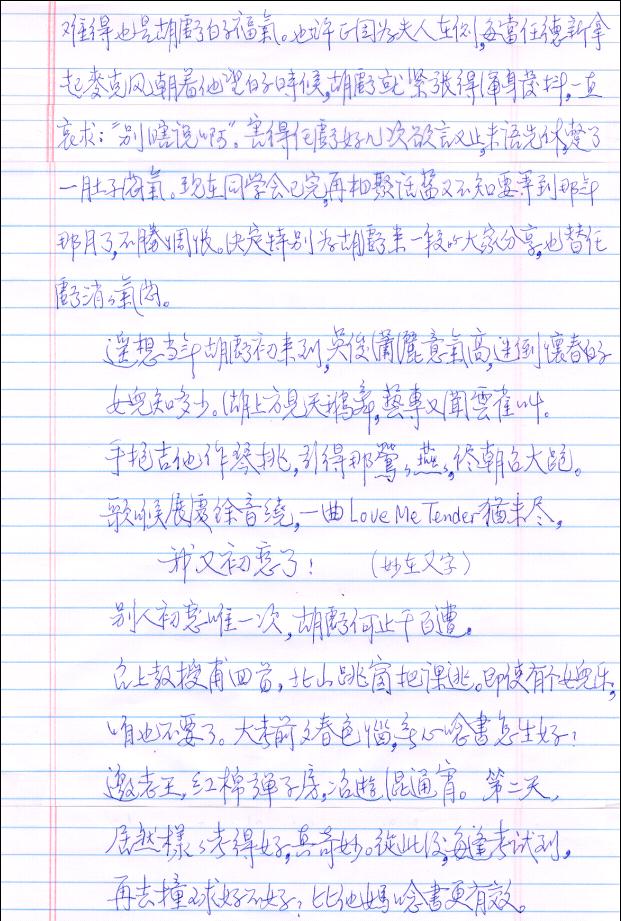 难得也是胡爵的福氣。也许正因为夫人在侧,每當任德新拿
起麥克风朝着他望的時候,胡爵就緊張得渾身發抖,一直
哀求:“别瞎说啊”。害得任爵好几次欲言又止,未语先休,憋了
一肚子闷氣。现在同学会已完,再相聚话舊又不知要等到那年
那月了,不勝惆悵。决定特别为胡爵来一段の大家分享,也替任
爵消々氣闷。
遥想当年胡爵初来到,英俊瀟灑意氣高,迷倒懷春的
女兒知多少。湖上方見天鵝舞,藝專又聞雲雀叫。
手抱吉他作琴挑,引得那鶯々燕々,终朝台大跑。
歌喉展处馀音绕,一曲Love Me Tender猶未尽,
我又初恋了! (妙在又字)
别人初恋唯一次,胡爵何止千百遭。
台上教授甫回首,北山跳窗把课逃。即使有个女兒乐,
咱也不要了。大考前夕春色惱,無心唸書怎生好?
邀老王,红棉彈子房,冶遊混通宵。第二天,
居然樣々考得好,真奇妙。從此後,每逢考试到,
再去撞球好不好?比他媽唸書更有效。